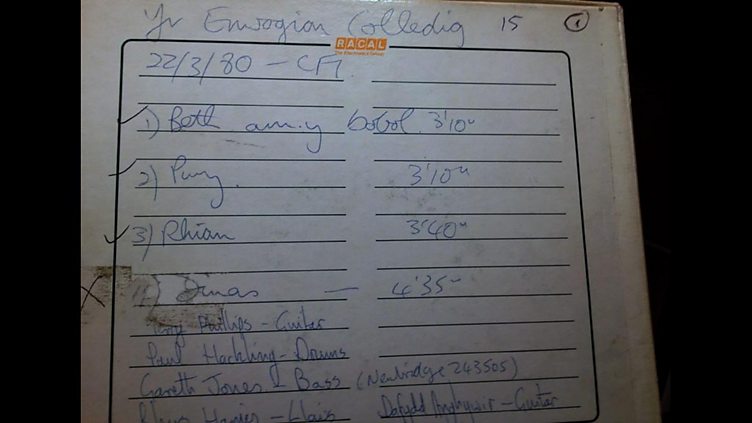 Yr Enwogion Colledig 15 1
RACAL
The Electronics Group
22/3/80 - CF1.
1) Beth am.y bobol 3'10"
2) 3'10"
3) Rhian 3'40"
Dinas - 4'35"
Tony Phillips - Guitar
Paul Hackling - Drums
Gareth Jones - Bass (Newbridge 243505)
Rhys Harries - Llais Dafydd - Guitar